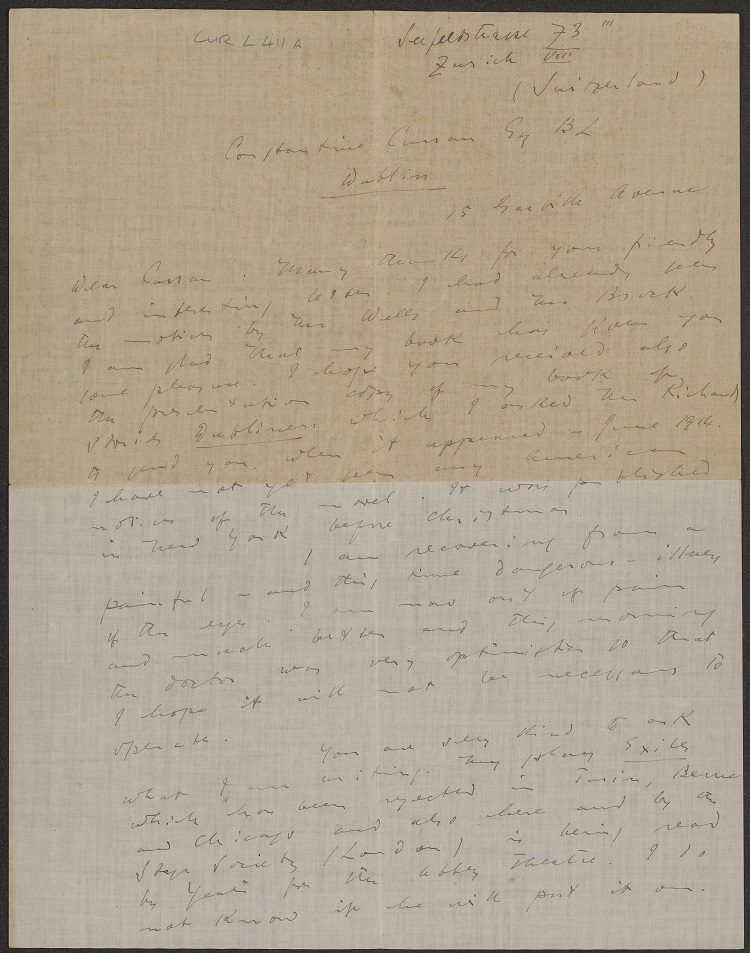 CUR L 411 A
Seefeldstrasse 73 III
Zurich VIII
(Switzerland)
Constantine Curran Esq BL
Dublin
15 Garville Avenue
Dear Curran. Many thanks for your friendly
and interesting letter. I had already seen
the notices by Mr Wells and Mr Brock.
I am glad that my book has given you
some pleasure. I hope you received also
the presentation copy of my book of
stories Dubliners which I asked Mr Richards
to send you when it appeared – June 1914.
I have not yet seen any American
notices of the novel. It was published
in New York before Christmas.
I am recovering from a
painful – and this time dangerous – illness
of the eyes. I am now out of pain
and much better and this morning
the doctor was very optimistic so that
I hope it will not be necessary to
operate.
You are very kind to ask
what I am writing. My play Exiles
which has been rejected in Turin, Berne
and Chicago and also here and by the
Stage Society (London) is being read
by Yeats for the Abbey Theatre. I do
not know if he will put it on.